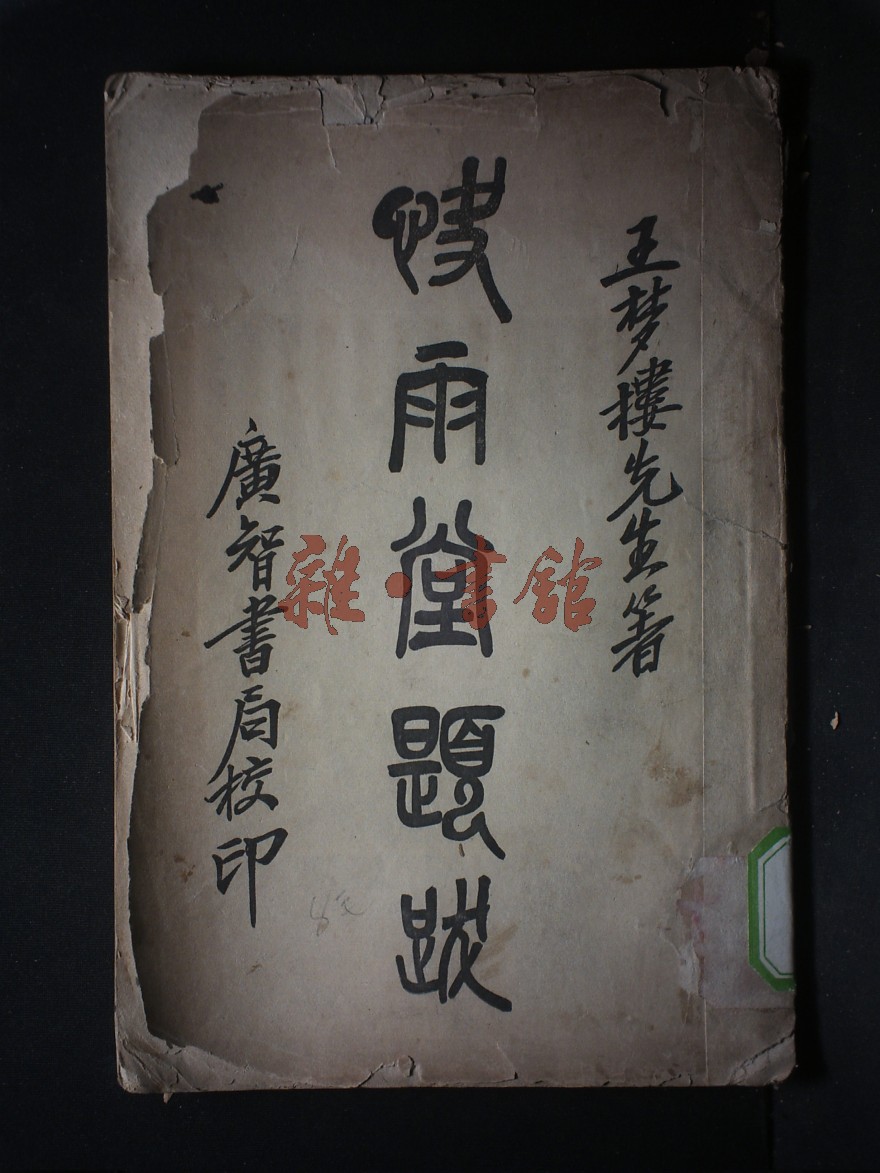 王梦樓先生著
快雨堂題跋
廣智書局校印
雜·書館